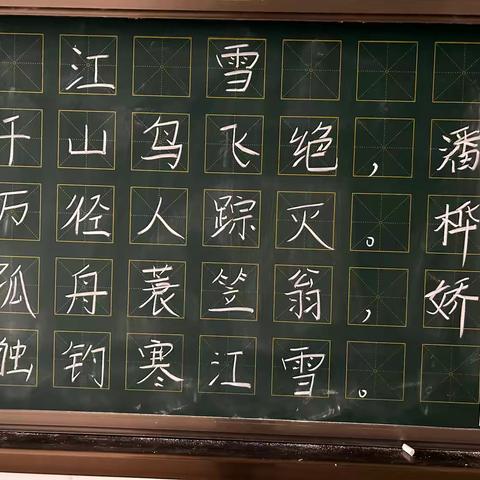 江雪
千山鸟飞绝，
万径人踪灭。
孤舟蓑笠翁，
独钓寒江雪。
潘桦娇